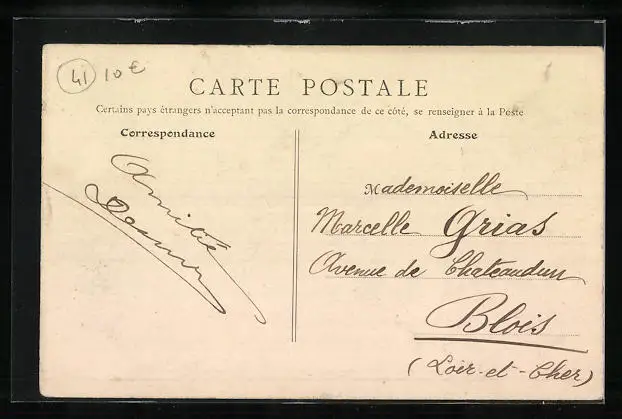 41 10€
CARTE POSTALE
Certains pays étrangers n'acceptant pas la correspondance de ce côté, se renseigner à la Poste
Correspondance
Amitié
Adresse
Mademoiselle
Marcelle Grias
Avenue de Chateaudun
Blois
(Loir-et-Cher)